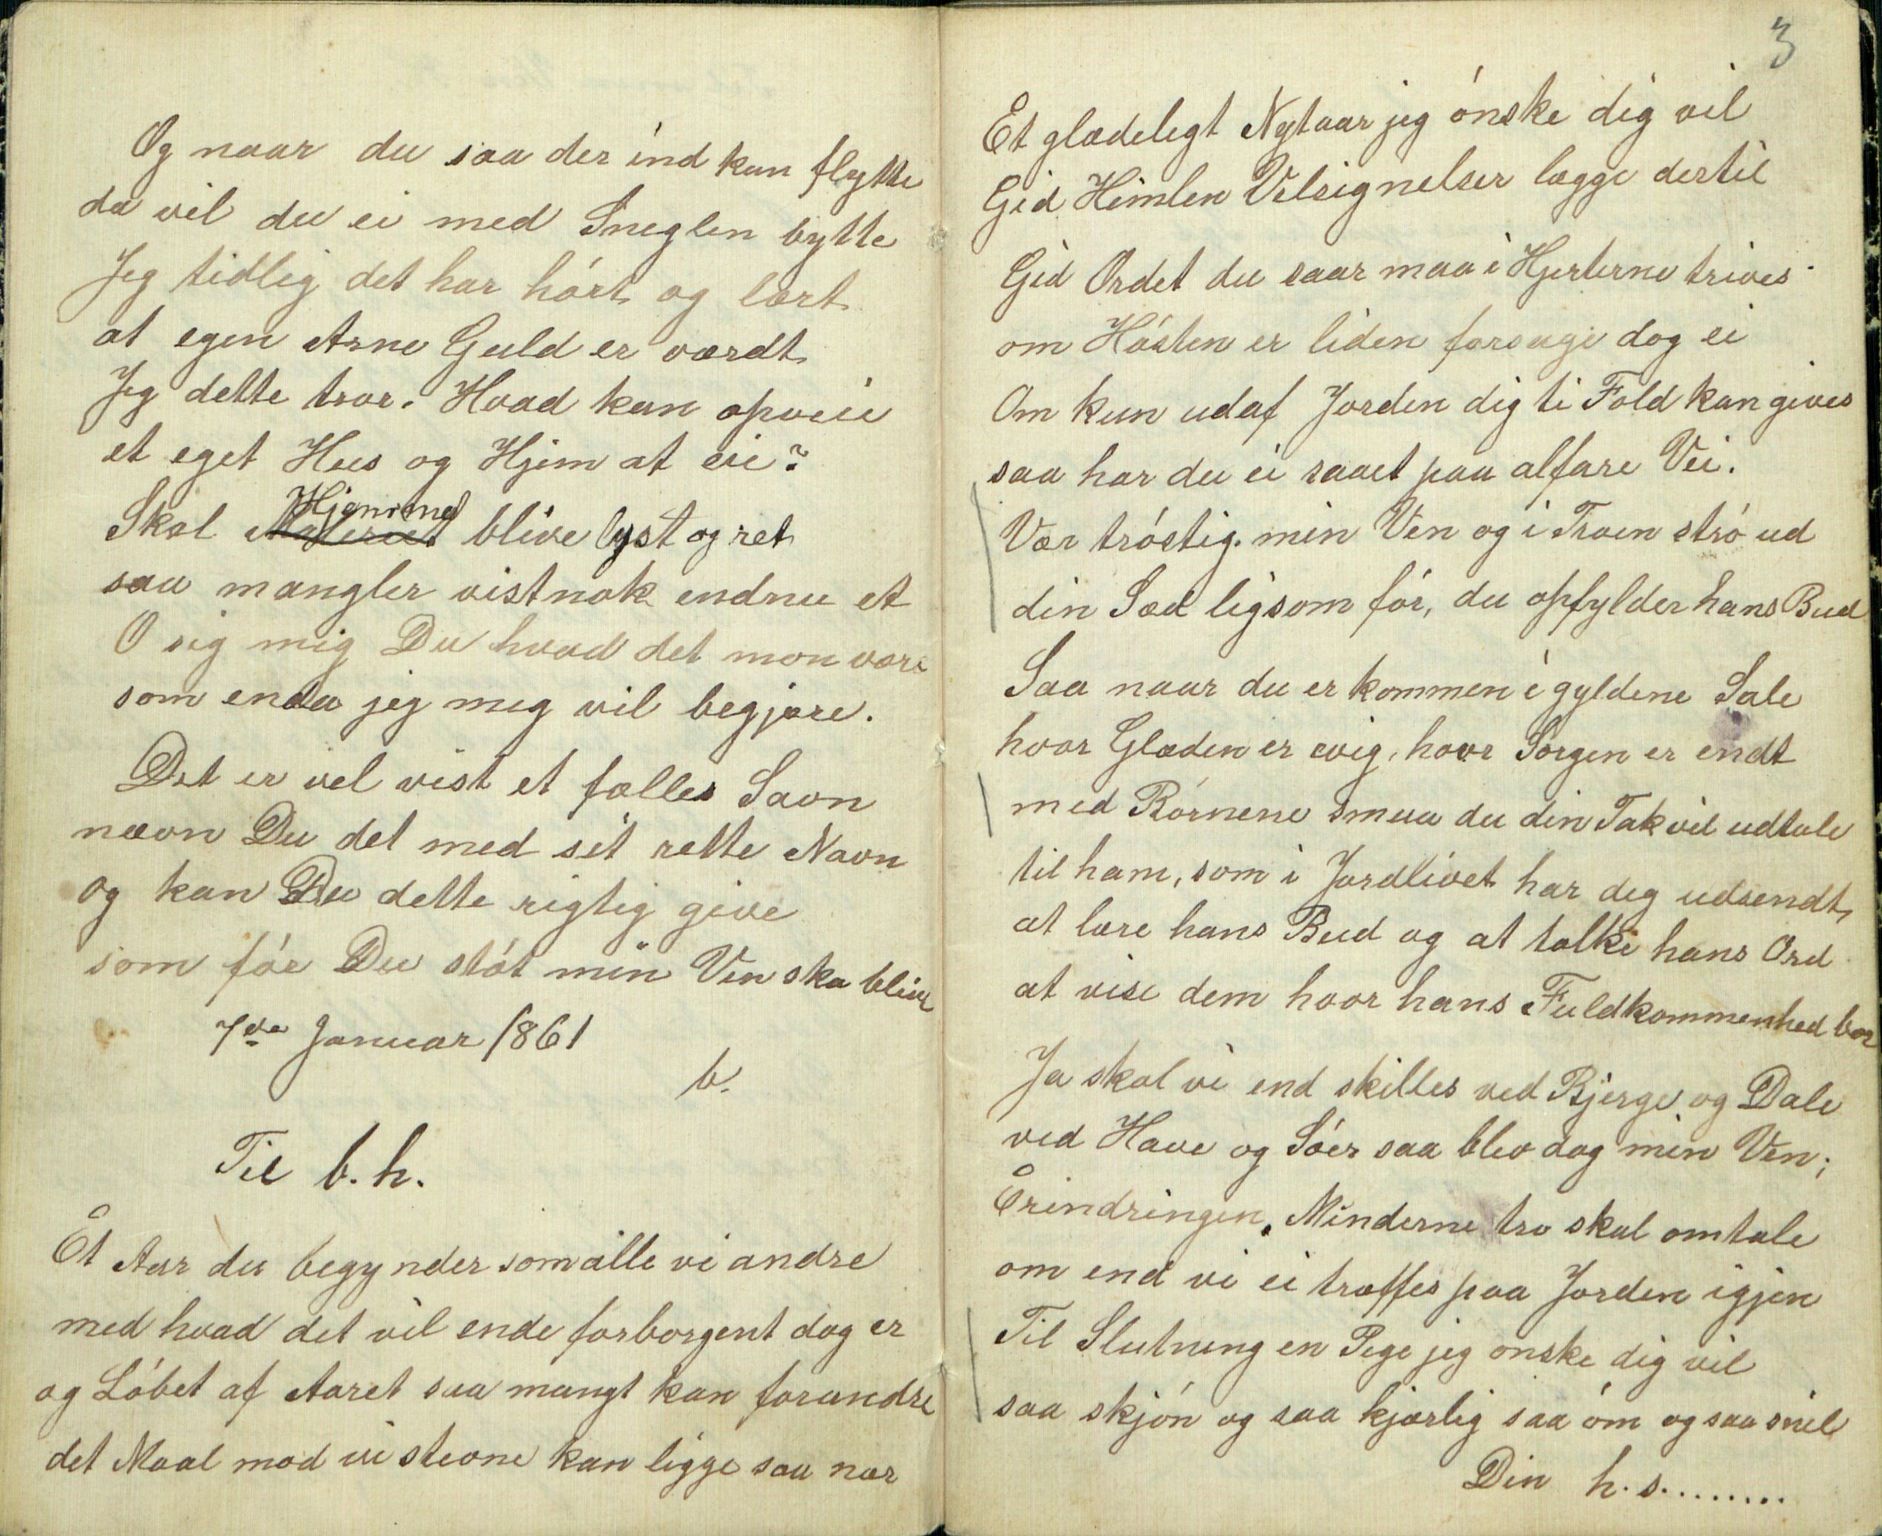 Og naar du saa der ind kan flytte
da vil du ei med Sneglen bytte
Jeg tidlig det har hórt og lært
at egen Arne Guld er værdt
Jeg dette tror. Hvad kan opveie
et eget Hus og Hjem at eie?
Hjemmet
Skal blive lyst og ret
saa mangler vistnok endnu et
O sig mig Du hvad det mon være
som enda jeg mig vil begjære.
Det er vel vist et fælles Savn
nævn Du det med sit rette Navn
og kan Du dette rigtig give
som fór Du stót min Ven ska blive
7de Januar 1861
b.
Til b. h.
Et Aar du begynder som alle vi andre
med hvad det vil ende forborgent dog er
og Lóbet af Aaret saa mangt kan forandre
det Maal mod vi stevne kan ligge saa nær
3
Et glædeligt Nytaar jeg ónske dig vil
Gid Himlen Velsignelser lægge dertil
Gid Ordet du saar maa i Hjerterne trives
om Hósten er liden forsage dog ei
Om kun udaf Jorden dig ti Fold kan gives
saa har du ei saaet paa alfare Vei.
Vær tróstig min Ven og i Troen stró ud
din Sæd ligsom fór, du opfylder hans Bud
Saa naar du er kommen i gyldene Sale
hvor Glæden er evig, hvor Sorgen er endt
med Bórnene smaa du din Tak vil udtale
til ham, som i Jordlivet har dig udsendt,
at lære hans Bud og at tolke hans Ord
at vise dem hvor hans Fuldkommenhed bor
Ja skal vi end skilles ved Bjerge og Dale
ved Have og Sóer saa blev dog min Ven;
Erindringen, Minderne tro skal omtale
om end vi ei træffes paa Jorden igjen
Til Slutning en Pige jeg ónske dig vil
saa skjón og saa kjærlig saa óm og saa snil
Din h. s........